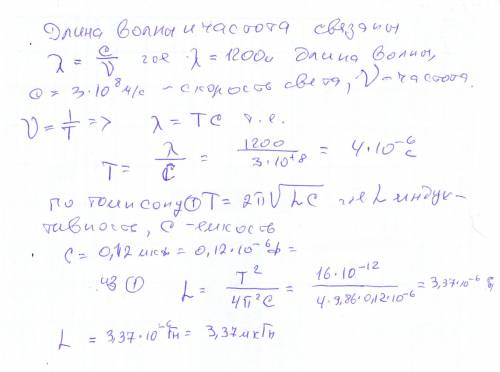 Длина волны и частота связаны
λ = c/ν где λ = 1200м длина волны,
c = 3·10⁸ м/с – скорость света, ν – частота.
ν = 1/T => λ = TC т.е.
T = λ/C = 1200/3·10⁺⁸ = 4·10⁻⁶ с
по томпсону ① T = 2π√LC где L индук-
тивность, C – емкость
C = 0,12 мкф = 0,12·10⁻⁶ ф =
из ① L = T²/4π²C = 16·10⁻¹²/4·9,86·0,12·10⁻⁶ = 3,37·10⁻⁶
L = 3,37·10⁻⁶ Гн = 3,37 мкГн